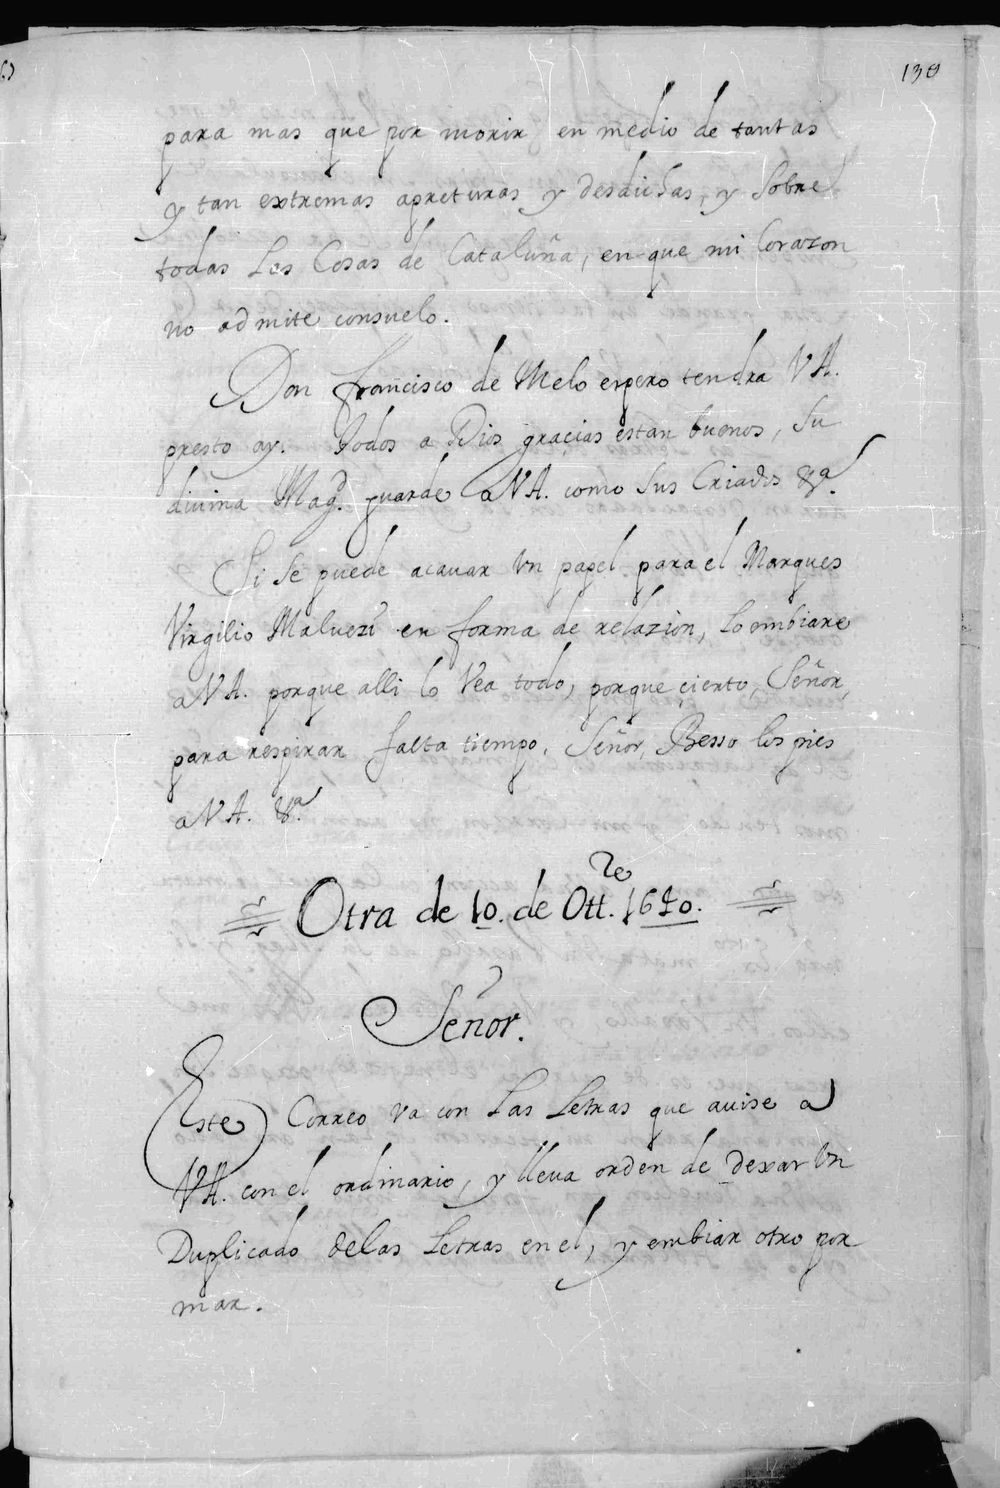 130
para mas que por morir en medio de tantas
y tan extremas apreturas y desdichas, y sobre
todas las Cosas de Cataluña, en que mi Corazon
no admite consuelo.
Don françisco de Melo espero tendra VA.
presto ay. todos a Dios gracias estan buenos, Su
diuina Magd. guarde a VA. como sus Criados &a.
Si se puede acauar Un papel para el Marques
Virgilio Maluezi en forma de relazion, lo embiare
a VA. porque alli lo Vea todo, porque cierto, Señor,
para respirar falta tiempo. Señor, Besso los pies
a VA. &a.
Otra de 10. de Ott.re 1640.
Señor.
Este Correo va con las Letras que auise a
VA. con el ordinario, y lleua orden de dexar Un
Duplicado de las Letras en el, y embiar otro por
mar.